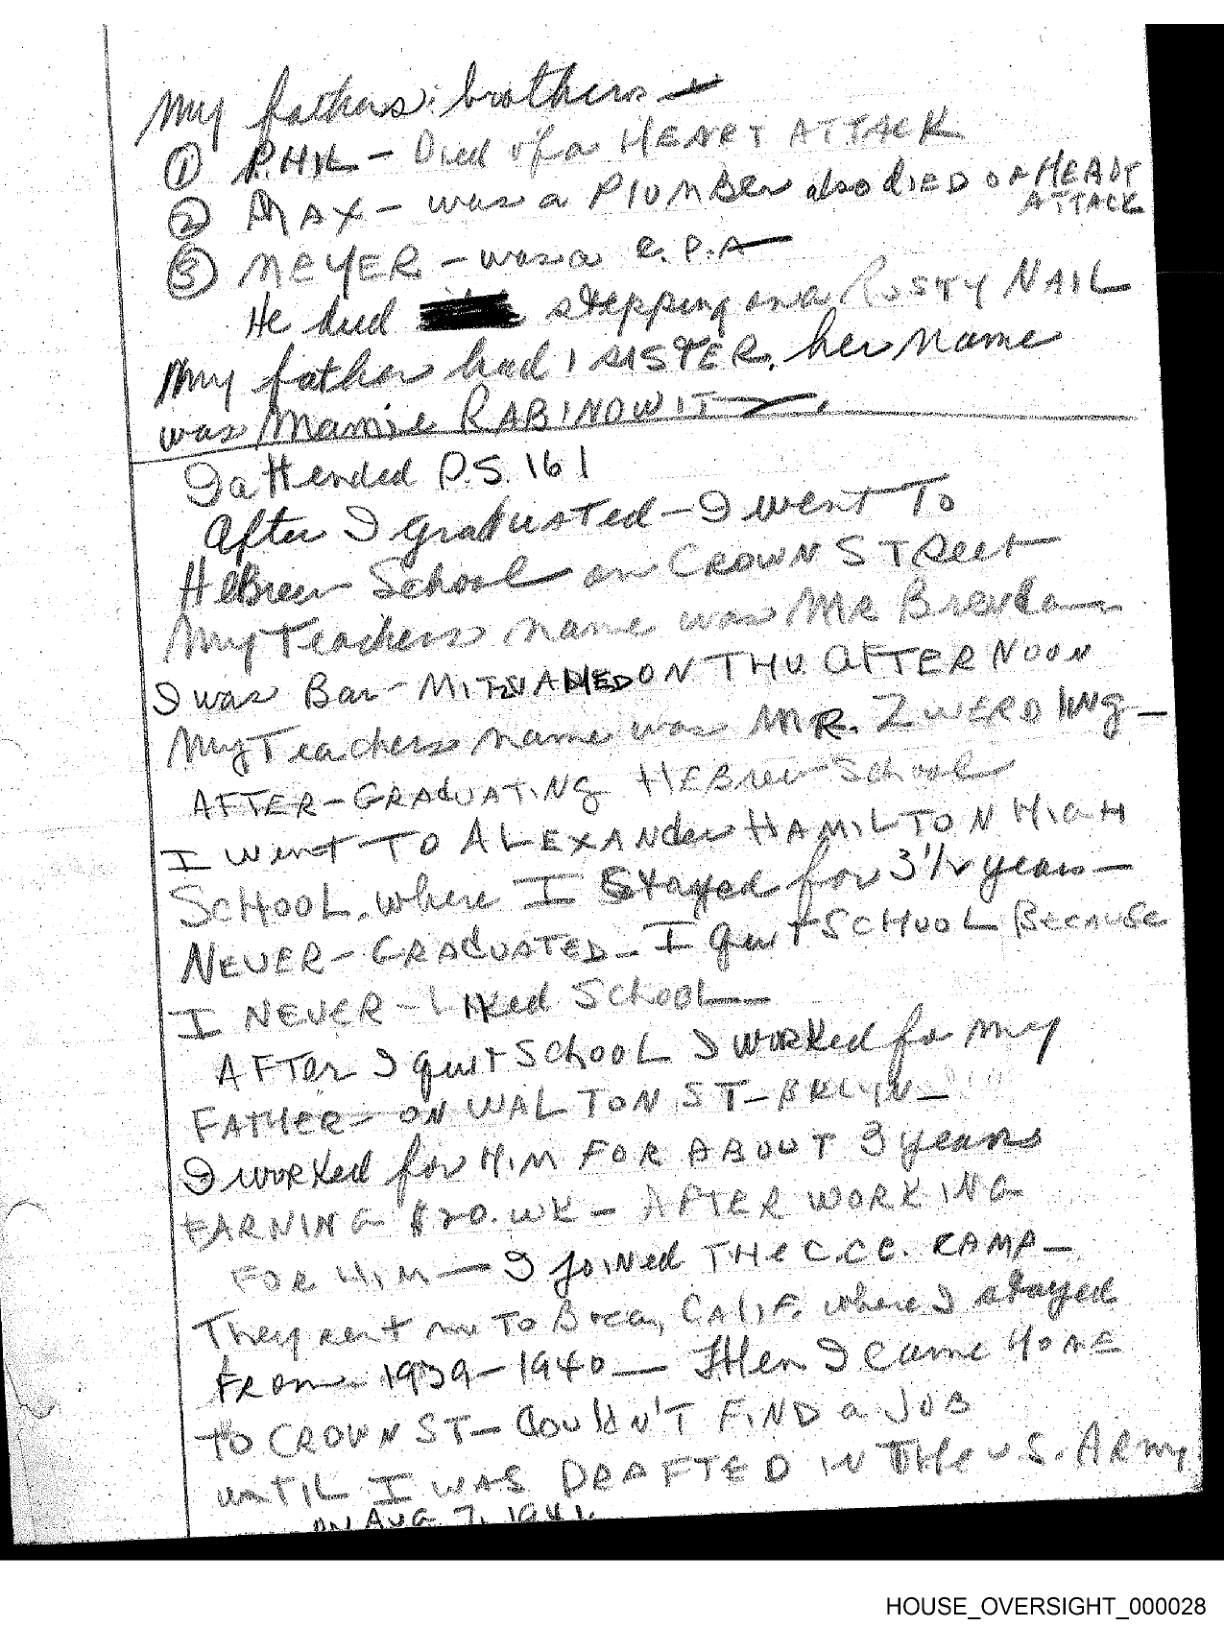 My fathers brothers -
① PHIL - Died of a HEART ATTACK
② MAX - was a PlUMBer also dIED OF HEART
ATTACK
③ MEYER - was a C.P.A -
He died stepping on a RUSTY NAIL
My father had 1 SISTER. her name
was Mamie RABINOWITZ.
I attended P.S. 161
After I graduated - I went To
HeBrew School on CROWN STReet
My Teachers name was MR
I was Bar-MITZVAHED ON THU. AFTERNOON
My Teachers name was MR. ZWERDlING -
AFTER - GRADUATING HEBrew School
I went TO ALEXANder HAMILTON HIGH
SCHOOL, where I Stayed for 3 1/2 years -
NEVER - GRADUATED - I quit SCHOOL BECAUSE
I NEVER - LIKed SCHOOL -
AFTer I quit SCHOOL I worked for my
FATHER - ON WALTON ST - BKLYN -
I worked for HIM FOR ABOUT 3 years
EARNING $20. WK - AFTER WORKING
FOR HIM - I JOINed THe C.C.C. CAMP -
They sent me To Brea, CALIF. where I stayed
FROM 1939 - 1940 - THen I came HOME
TO CROWN ST - Couldn'T FIND a JOB
unTIL I WAS DRAFTED IN THe U.S. ARmy
ON AUG 7, 1941.
HOUSE_OVERSIGHT_000028